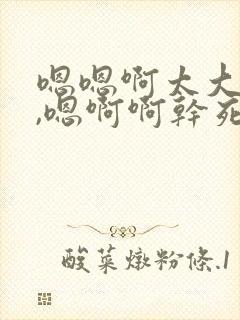 嗯嗯啊太大
,嗯啊啊幹死
酸菜燉粉條.1